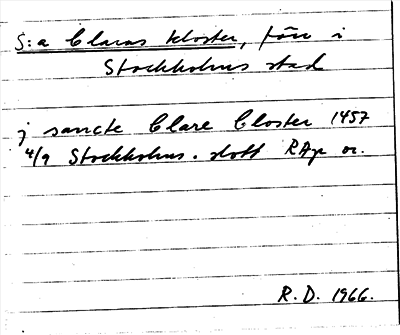 S:a Claras kloster, förr i
Stockholms stad
j sancte Clare Closter 1457
4/9 Stockholms slott RAp or.
R.D. 1966.